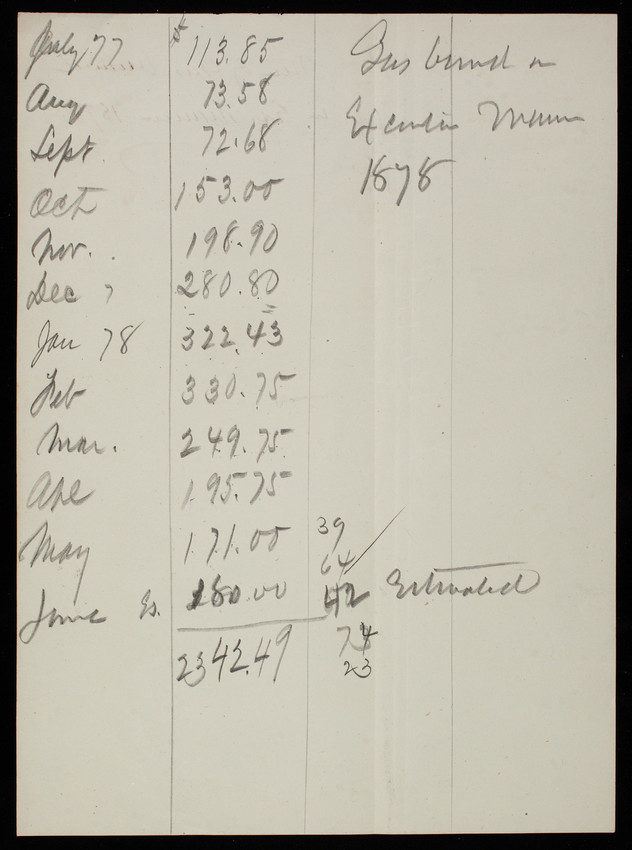 July 77 $ 113.85 Gas burned in
Aug 73.58 Executive Mansion
Sept 72.68 1878
Oct 153.00
Nov. 198.90
Dec 280.80
Jan 78 322.43
Feb 330.75
Mar. 249.75
Apl 195.75
May 171.00 39
64
June Es. 180.00 42 Estimated
2342.49 74
23